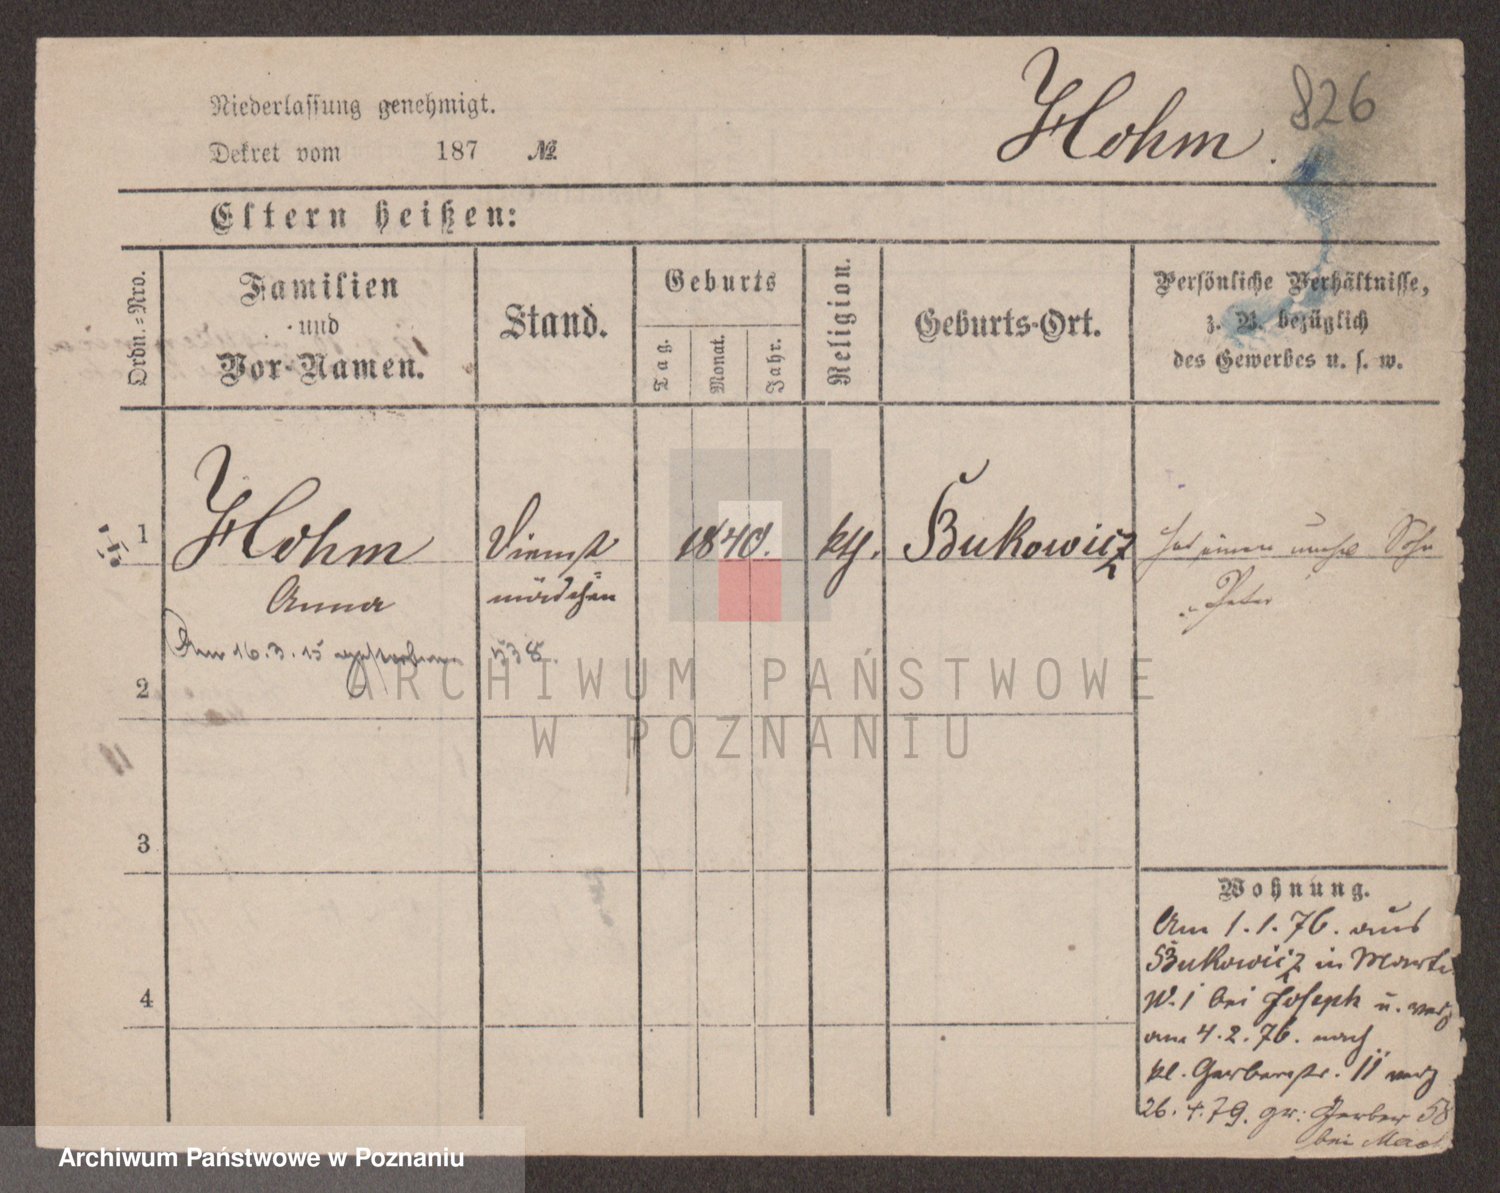 Niederlassung genehmigt.
Dekret vom 187 №
Hohm.
826
Eltern heißen:
Ordn.-Nro.
Familien
und
Vor-Namen.
Stand.
Geburts
Tag.
Monat.
Jahr.
Religion.
Geburts-Ort.
Persönliche Verhältnisse,
z. B. bezüglich
des Gewerbes u. s. w.
1 Hohm Dienst 1840. kth. Bukowicz hat einen unehel Sohn
Anna mädchen Peter
Am 16.3.15 gestorben 538.
2
ARCHIWUM PAŃSTWOWE
W POZNANIU
3
4
Wohnung.
Am 1.1.76. aus
Bukowicz in Martin
W. 1 bei Joseph u. verz
am 4.2.76. nach
kl. Gerberstr. 11 verz
26.4.79. gr. Gerber 58
bei
Archiwum Państwowe w Poznaniu